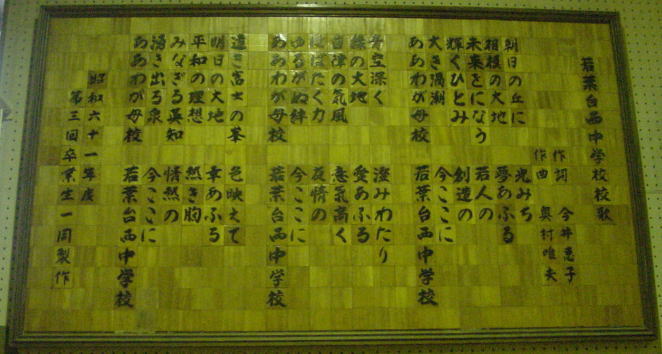 若葉台西中学校校歌
作詞 今井惠子
作曲 奥村唯夫
朝日の丘に 光みち
相模の大地 夢あふる
未来をになう 若人の
輝くひとみ 創造の
大き渦潮 今ここに
ああわが母校 若葉台西中学校
青空深く 澄みわたり
緑の大地 愛あふる
自律の気風 意気高く
はばたく力 友情の
ゆるがぬ絆 今ここに
ああわが母校 若葉台西中学校
遠き富士の峯 色映えて
明日の大地 幸あふる
平和の理想 熱き胸
みなぎる英知 情熱の
湧き出る泉 今ここに
ああわが母校 若葉台西中学校
昭和六十一年度
第三回卒業生一同製作